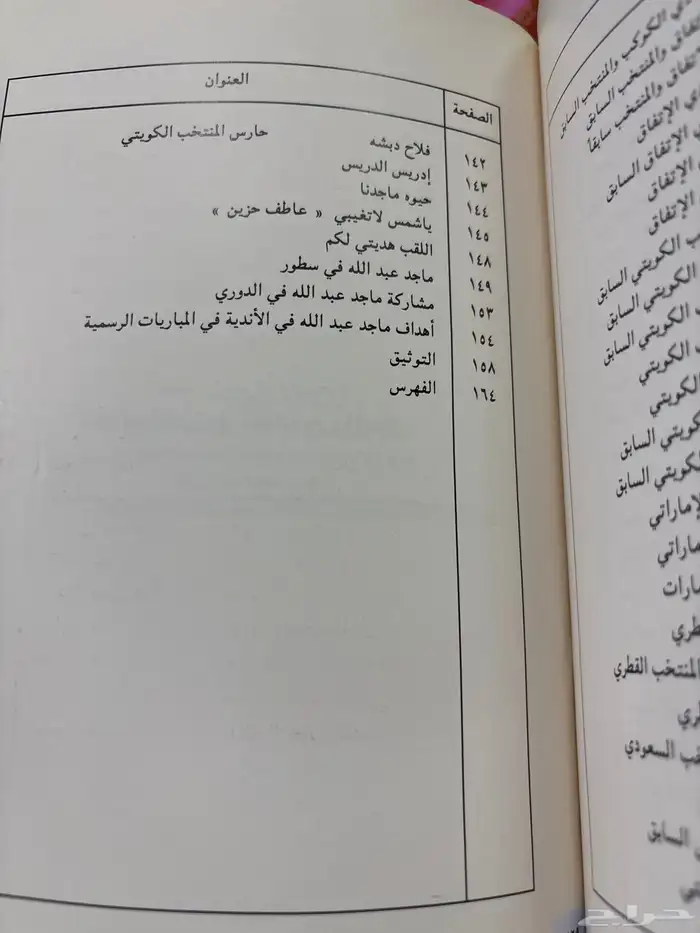 الصفحة العنوان
١٤٢ فلاح دبشه حارس المنتخب الكويتي
١٤٣ إدريس الدريس
١٤٤ حيوه ماجدنا
١٤٥ ياشمس لاتغيبي « عاطف حزين »
١٤٨ اللقب هديتي لكم
١٤٩ ماجد عبد الله في سطور
١٥٣ مشاركة ماجد عبد الله في الدوري
١٥٤ أهداف ماجد عبد الله في الأندية في المباريات الرسمية
١٥٨ التوثيق
١٦٤ الفهرس
الكوكب والمنتخب السابق
والمنتخب السابق
والمنتخب سابقاً
الإتفاق
الإتفاق السابق
الإتفاق
الإتفاق
الكويتي السابق
الكويتي السابق
الكويتي السابق
الكويتي
الكويتي
السابق
السابق
المنتخب القطري
السعودي
السابق
حراج